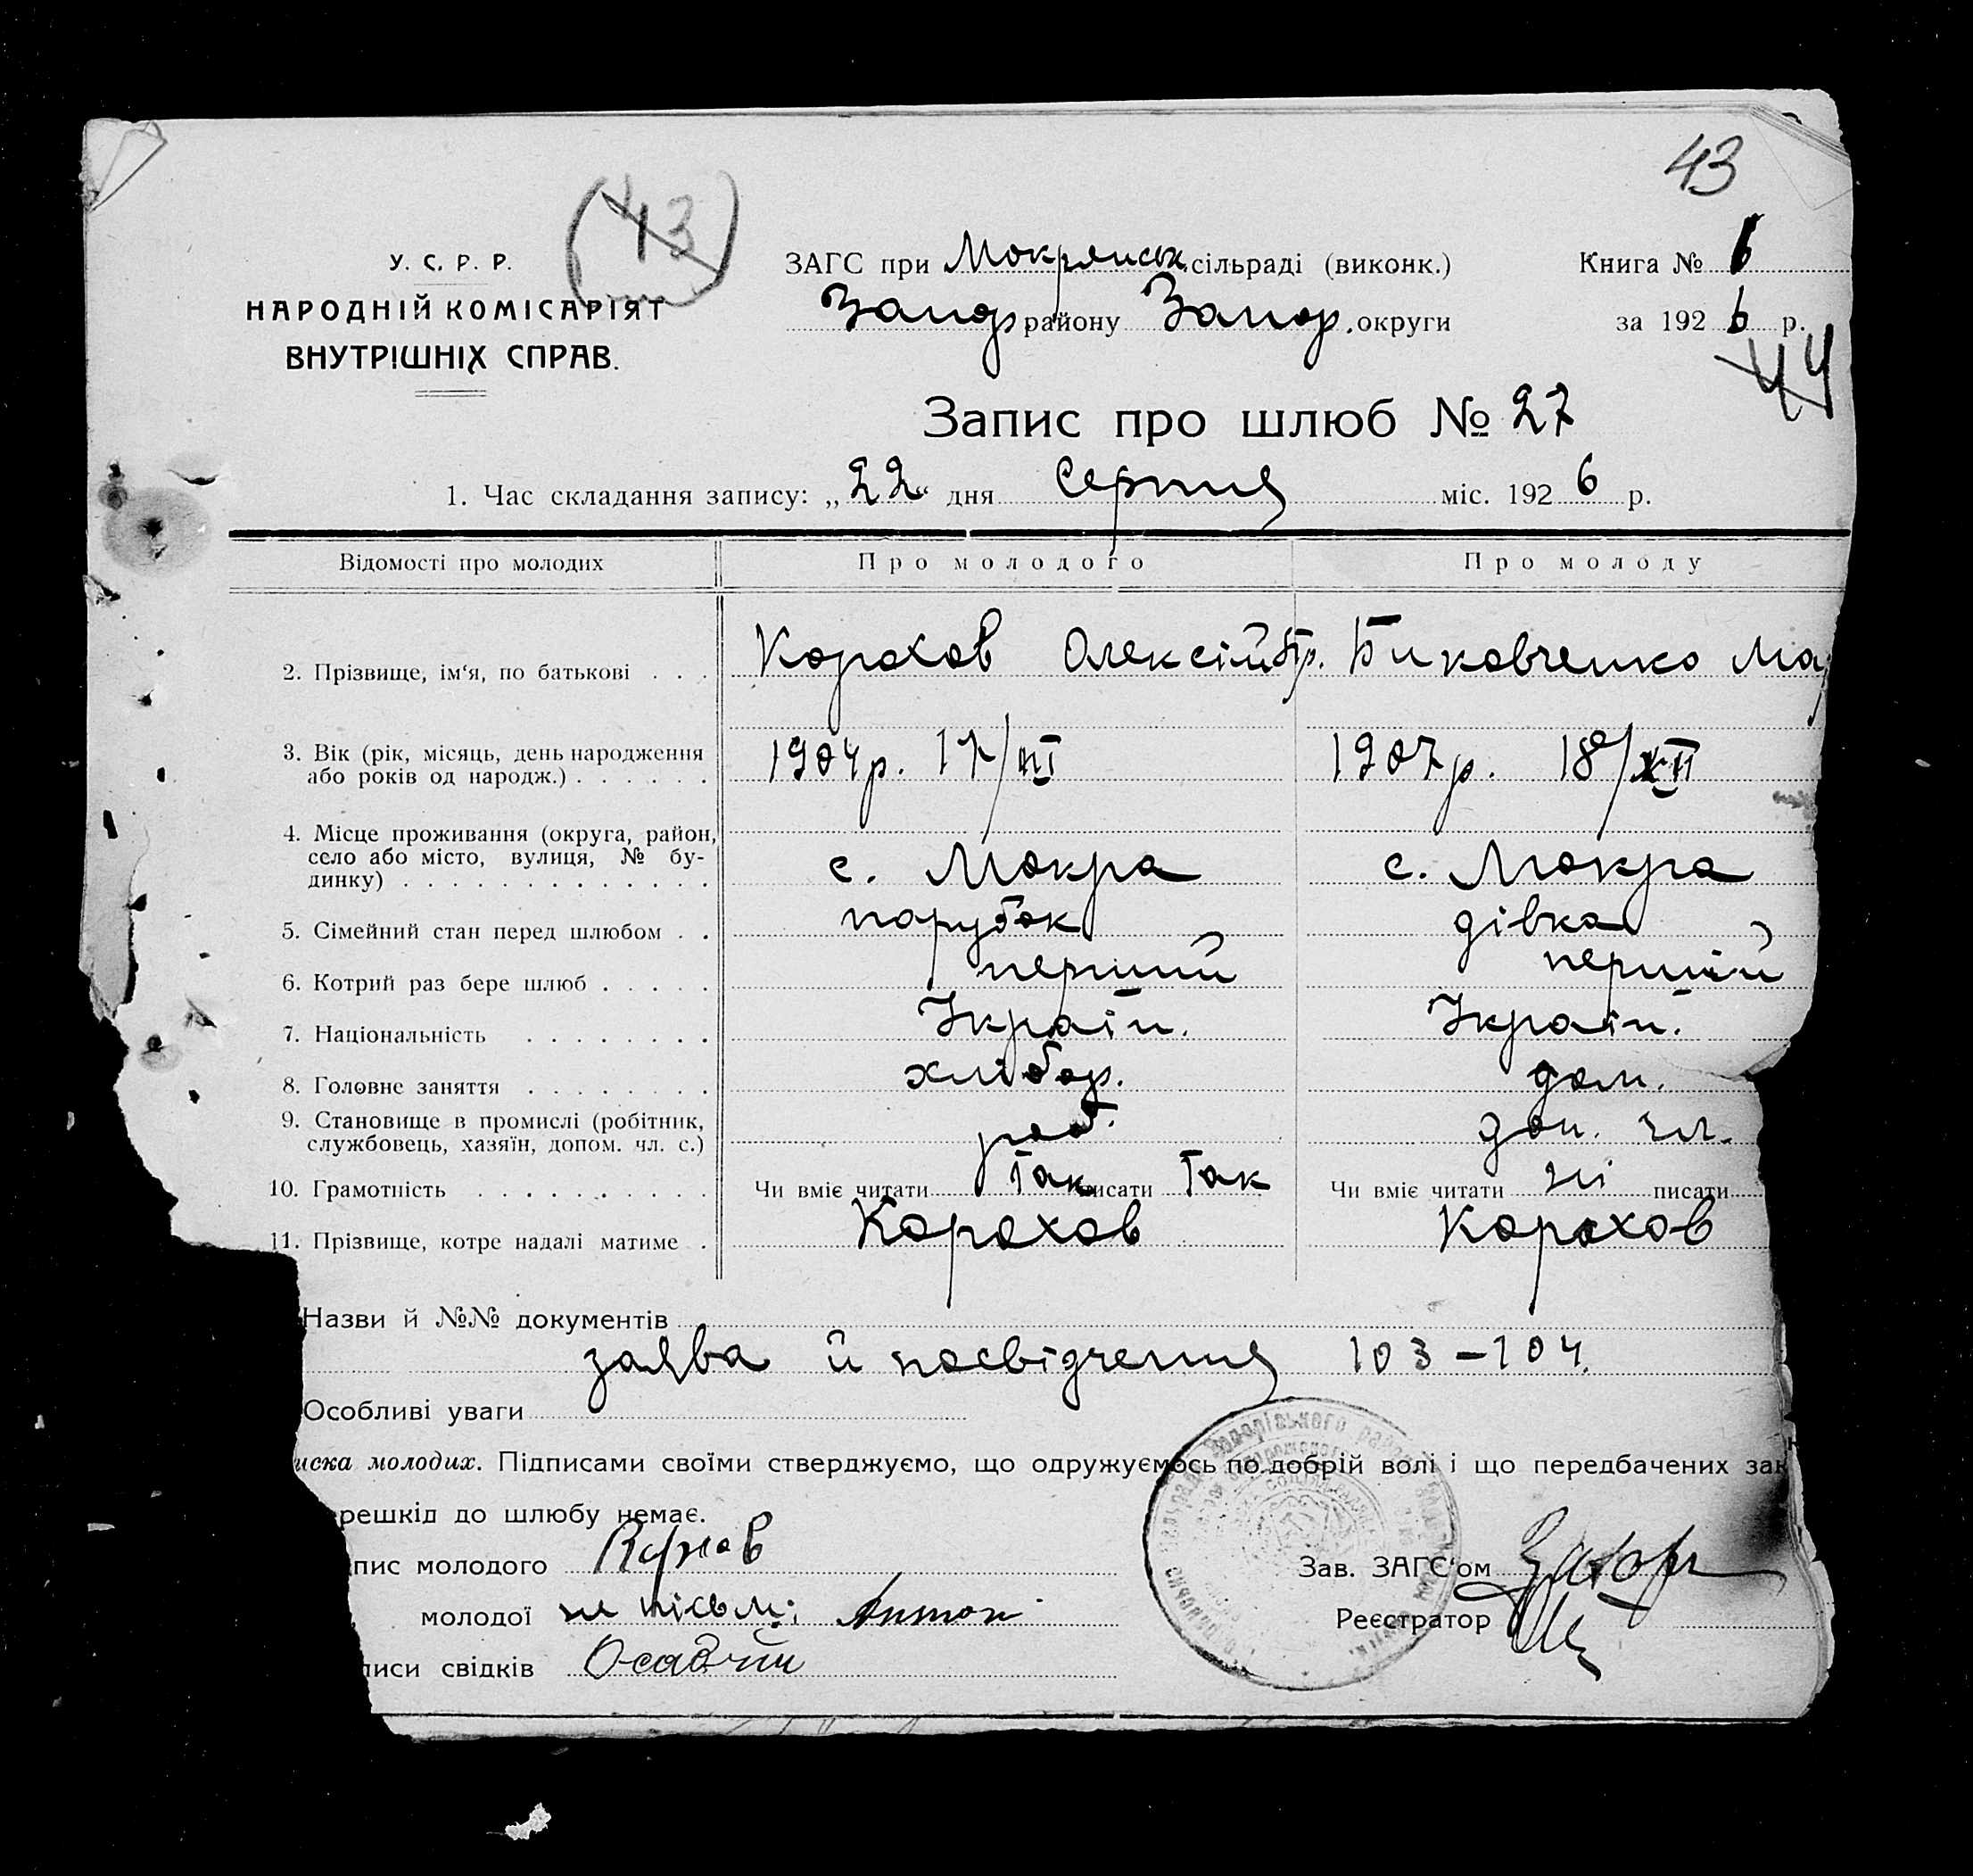 43
(43)
У. С. Р. Р.
НАРОДНІЙ КОМІСАРІЯТ
ВНУТРІШНІХ СПРАВ.
ЗАГС при Мокрянськ. сільраді (виконк.)
Запор. району Запор. округи
Книга № 6
за 1926 р.
44
Запис про шлюб № 27
1. Час складання запису: „22“ дня Серпня міс. 1926 р.
Відомості про молодих Про молодого Про молоду
2. Прізвище, ім‘я, по батькові . . . Корохов Олексій Гр. Биковченко Мар
3. Вік (рік, місяць, день народження
або років од народж.) . . . . . . 1904 р. 17/ 1907 р. 18/XII
4. Місце проживання (округа, район,
село або місто, вулиця, № бу-
динку) . . . . . . . . . . . . . с. Мокра с. Мокра
5. Сімейний стан перед шлюбом . . парубок дівка
6. Котрий раз бере шлюб . . . . . перший перший
7. Національність . . . . . . . . Україн. Україн.
8. Головне заняття . . . . . . . . хлібор. дом.
9. Становище в промислі (робітник,
службовець, хазяїн, допом. чл. с.) роб. доп. чл.
10. Грамотність . . . . . . . . . . Чи вміє читати Так писати Так Чи вміє читати ні писати
11. Прізвище, котре надалі матиме . Корохов Корохов
Назви й №№ документів
заява й посвідчення 103-104.
Особливі уваги
иска молодих. Підписами своїми стверджуємо, що одружуємось по добрій волі і що передбачених зак
решкід до шлюбу немає.
пис молодого
Зав. ЗАГС‘ом
молодої не пісьм: Антон
Реєстратор
писи свідків Осадчий